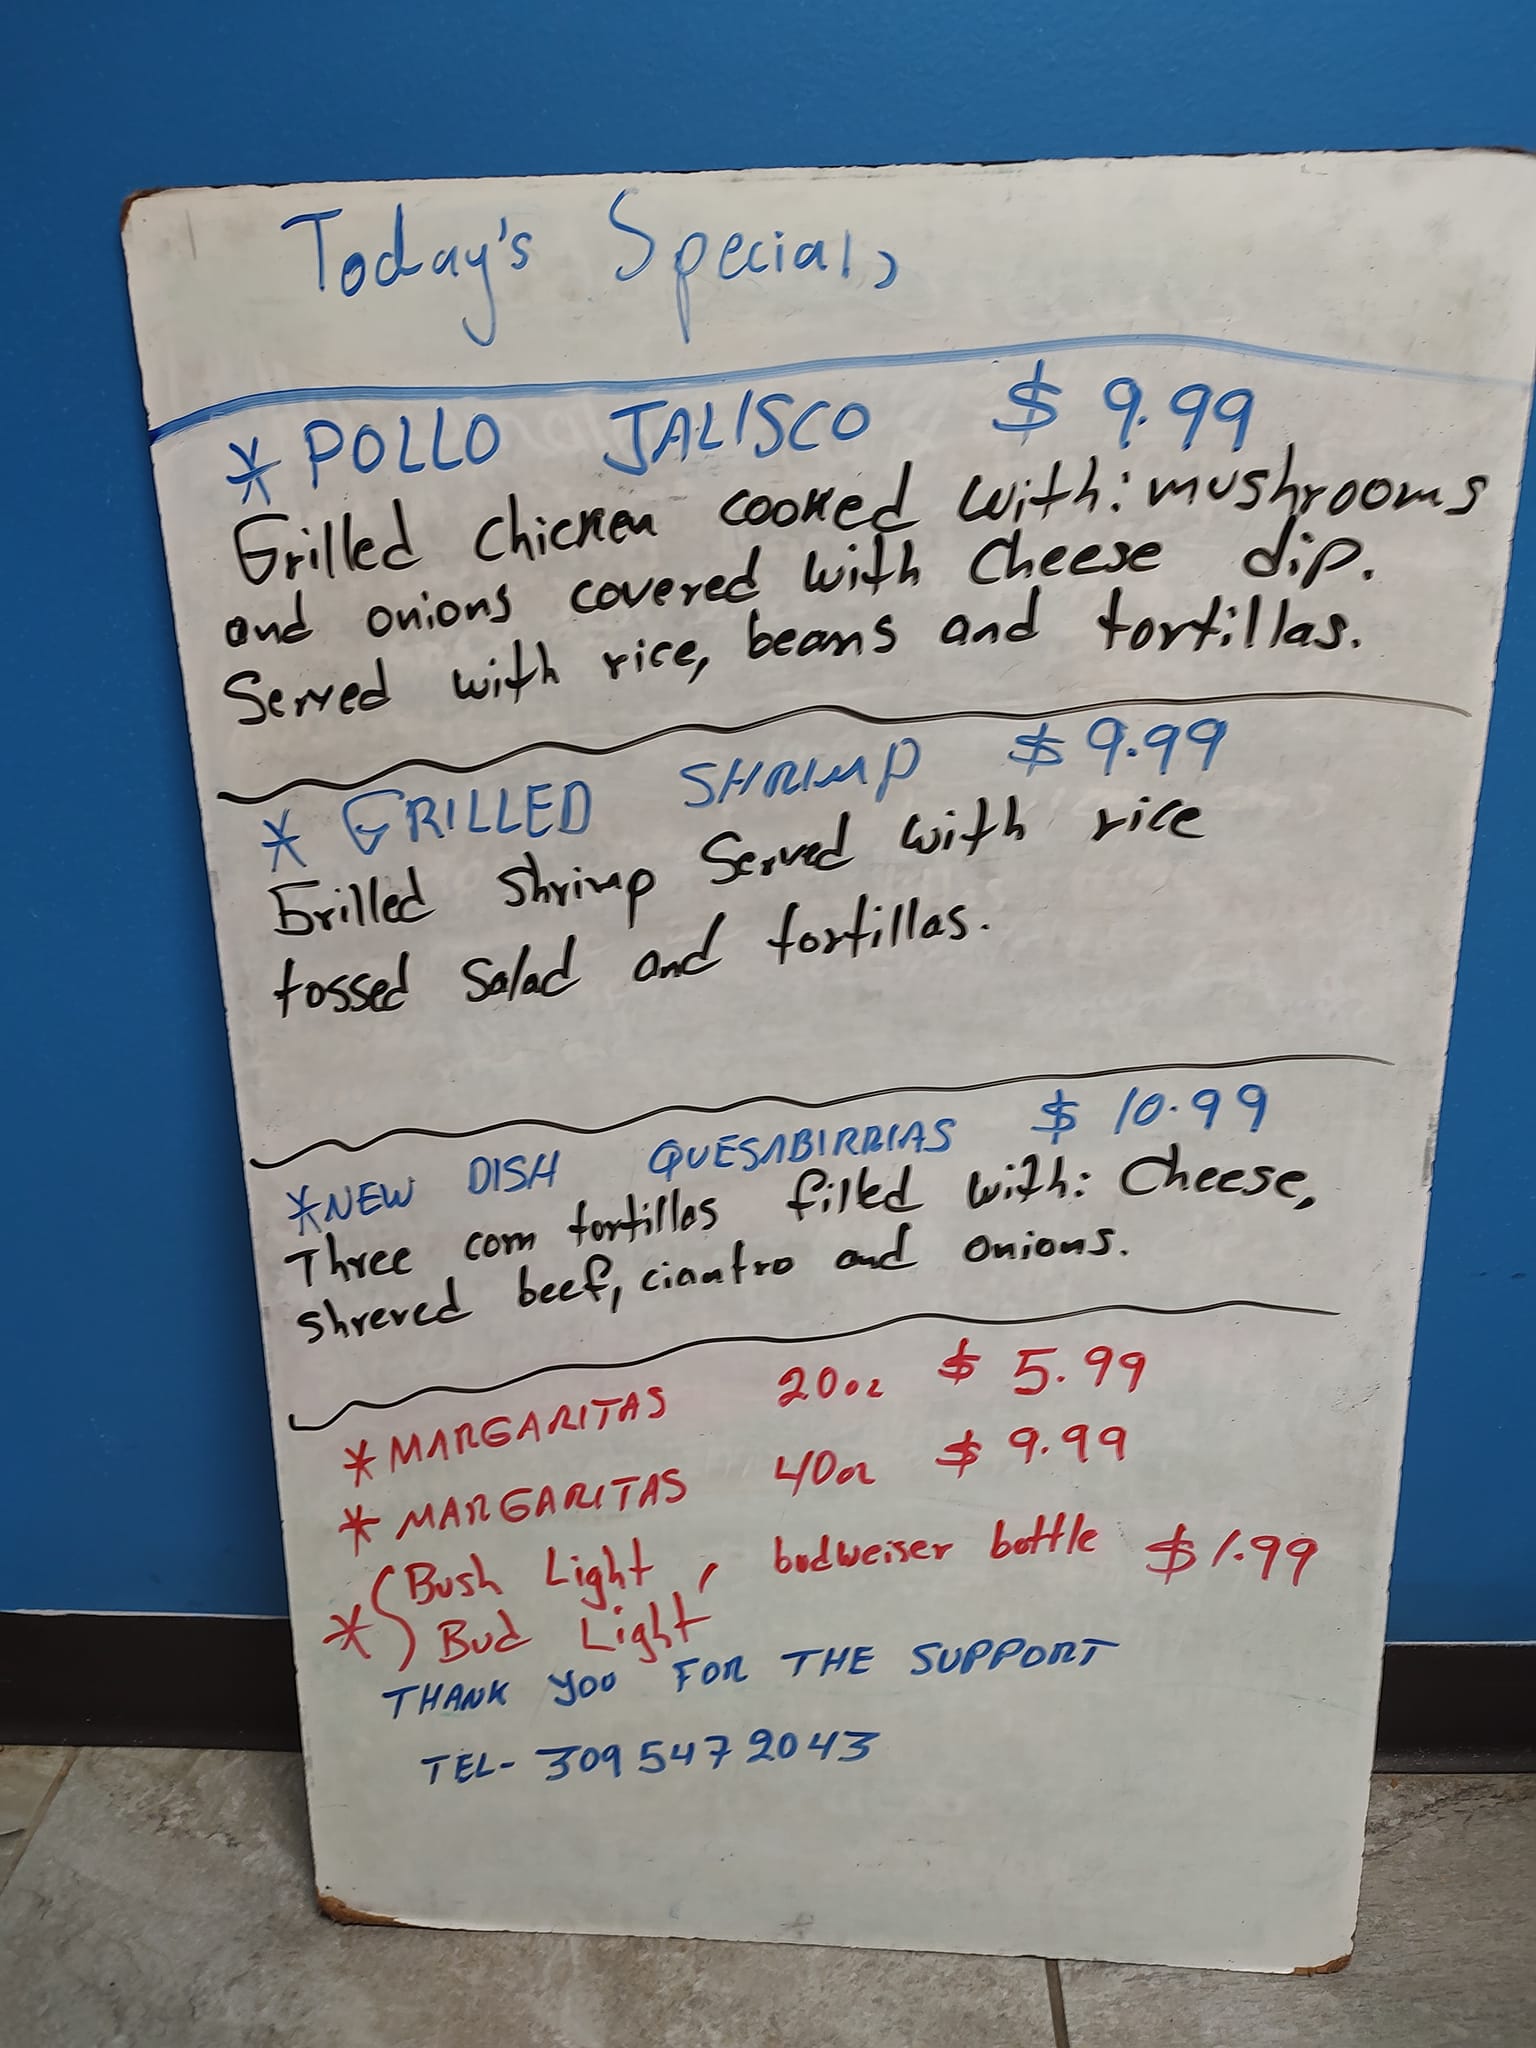 Today's Specials
* POLLO JALISCO $ 9.99
Grilled chicken cooked with: mushrooms
and onions covered with cheese dip.
Served with rice, beans and tortillas.
* GRILLED SHRIMP $ 9.99
Grilled shrimp served with rice
tossed salad and tortillas.
* NEW DISH QUESABIRRIAS $ 10.99
Three corn tortillas filled with: Cheese,
shrered beef, ciantro and onions.
* MARGARITAS 20oz $ 5.99
* MARGARITAS 40oz $ 9.99
* Bush Light, budweiser bottle $1.99
Bud Light
THANK YOU FOR THE SUPPORT
TEL- 309 547 2043